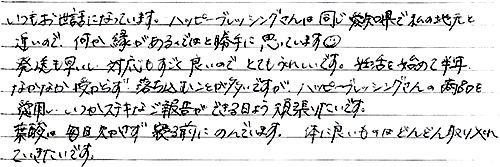 いつもお世話になっています。ハッピーブレッシングさんは同じ愛知県で私の地元と
近いので、何か縁があるのではと勝手に思っています☺
発送も早いし対応もすごく良いので とてもうれしいです。妊活を始めて半年、
なかなか授からず 落ち込むことが多いですが、ハッピーブレッシングさんの商品を
愛用し、いつかステキなご報告ができる日まで頑張りたいです。
葉酸は毎日欠かせず 寝る前にのんでいます。 体に良いものはどんどん取り入れ
ていきたいです。